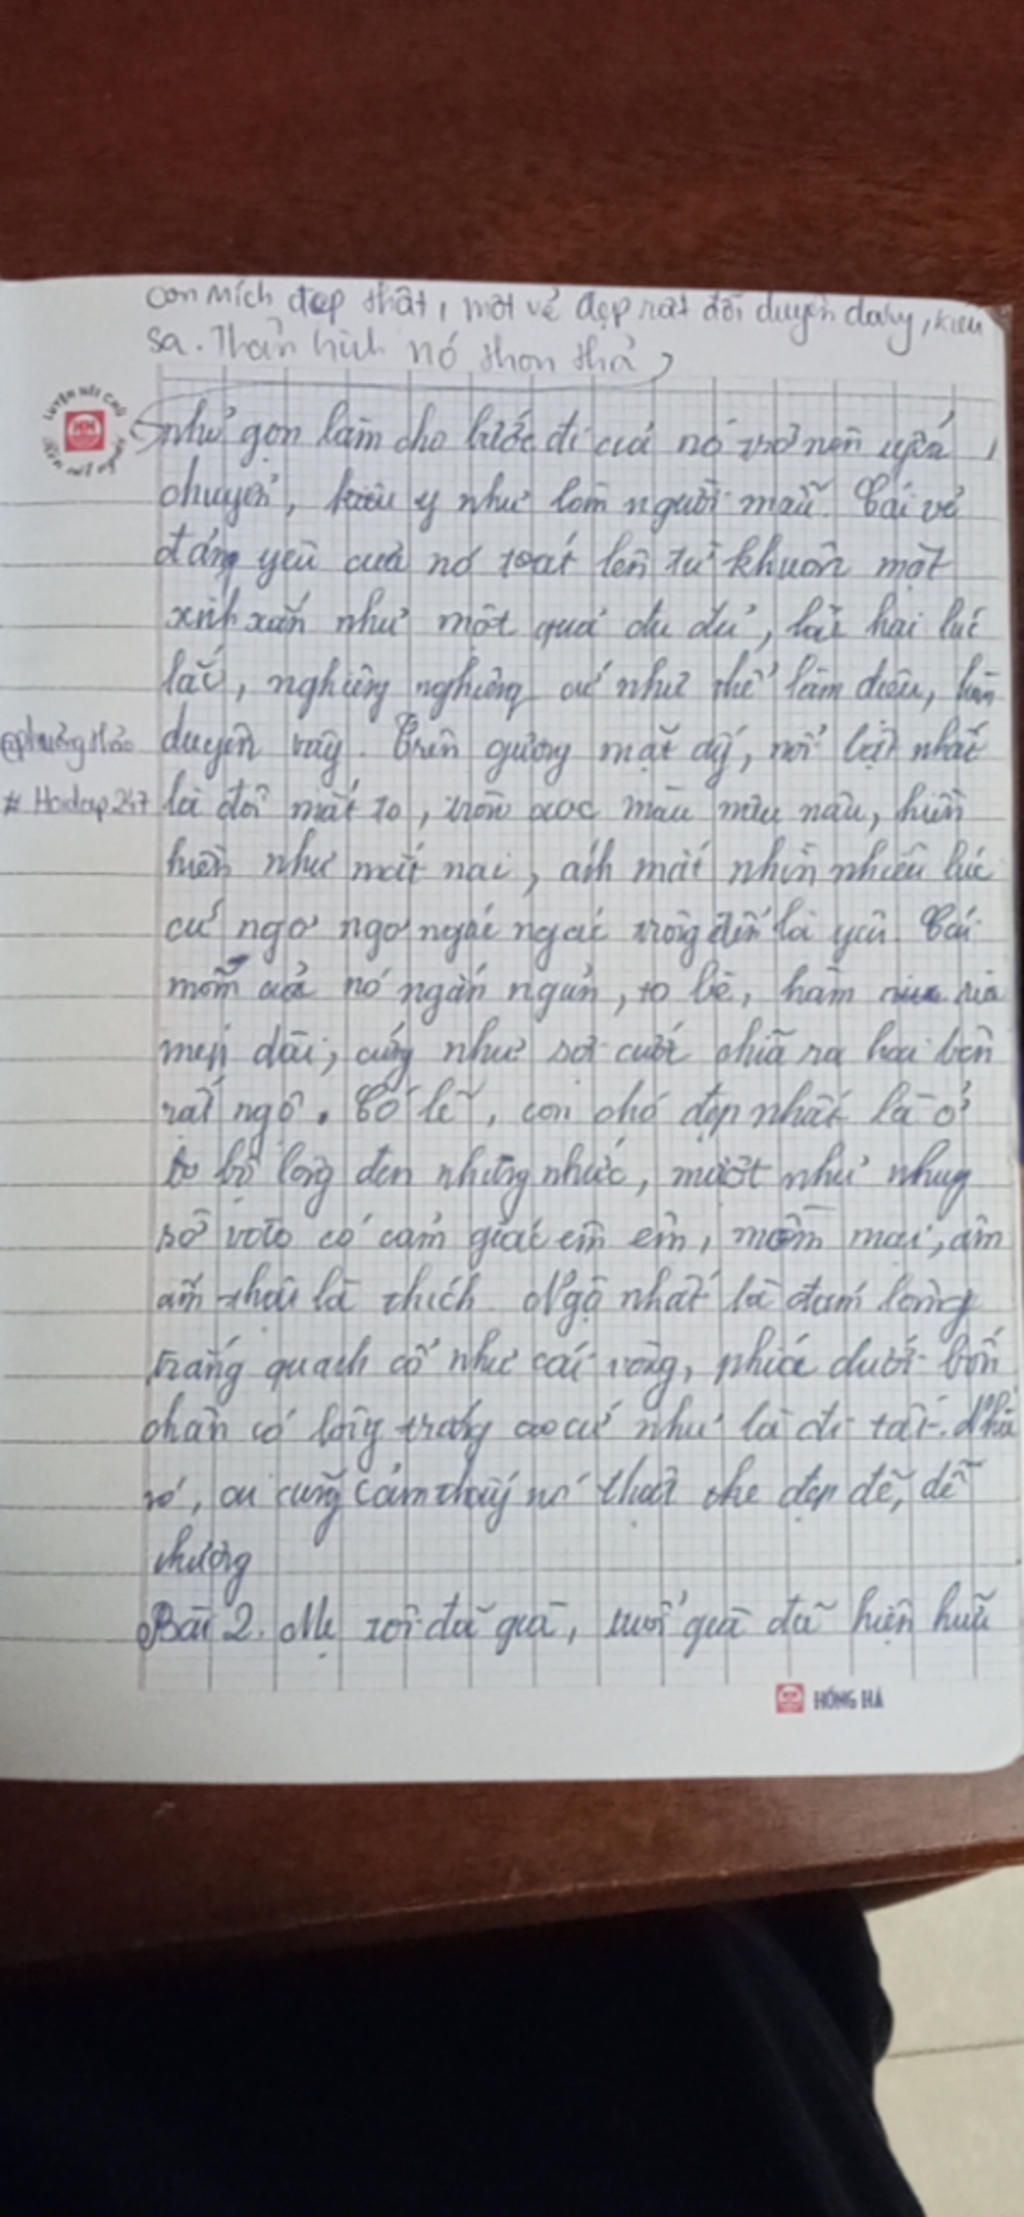 con Mích đẹp thật, một vẻ đẹp rất đỗi duyên dáng, kiêu
sa. Thân hình nó thon thả,
LUYỆN NÉT CHỮ
RÈN NẾT NGƯỜI
nhỏ gọn làm cho bước đi của nó trở nên uyển
chuyển, kiêu y như lom người mẫu. Cái vẻ
đáng yêu của nó toát lên từ khuôn mặt
xinh xắn như một quả đu đủ, lại hai lúc
lắc, nghiêng nghiêng cứ như thể làm điệu, làm
@phuongthảo duyên vậy. Trên gương mặt ấy, nổi bật nhất
# Hoidap247 là đôi mắt to, tròn xoe màu nâu, hiền
hiền như mắt nai, ánh mắt nhìn nhiều lúc
cứ ngơ ngơ ngác ngác trông đến là yêu. Cái
mõm của nó ngăn ngắn, to bè, hàm ria
mép dài, cứng như sợi cước chĩa ra hai bên
rất ngộ. Có lẽ, con chó đẹp nhất là ở
bộ lông đen nhưng nhức, mượt như nhung
sờ vào có cảm giác êm êm, mềm mại, âm
ấm thấy là thích. Ngộ nhất là đám lông
trắng quanh cổ như cái vòng, phía dưới bốn
chân có lông trắng cứ như là đi tất. Nhìn
nó, ai cũng cảm thấy nó thật là đẹp đẽ, dễ
thương
Bài 2. Mẹ tôi đã già, tuổi già đã hiện hữu
HỒNG HÀ